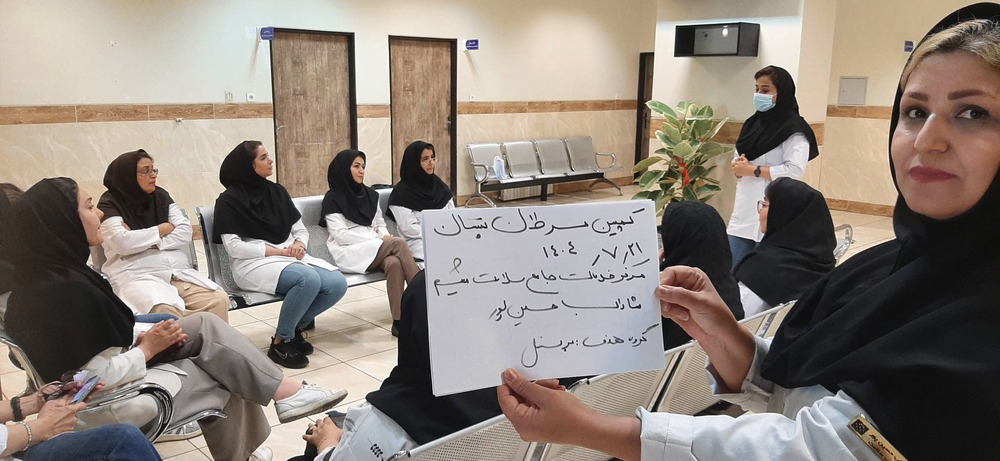 کمپین سرطان پستان
۱۴۰۴/۷/۲۱
مرکز خدمات جامع سلامت مقیم
شاداب حسین پور
گروه هدف : پرسنل